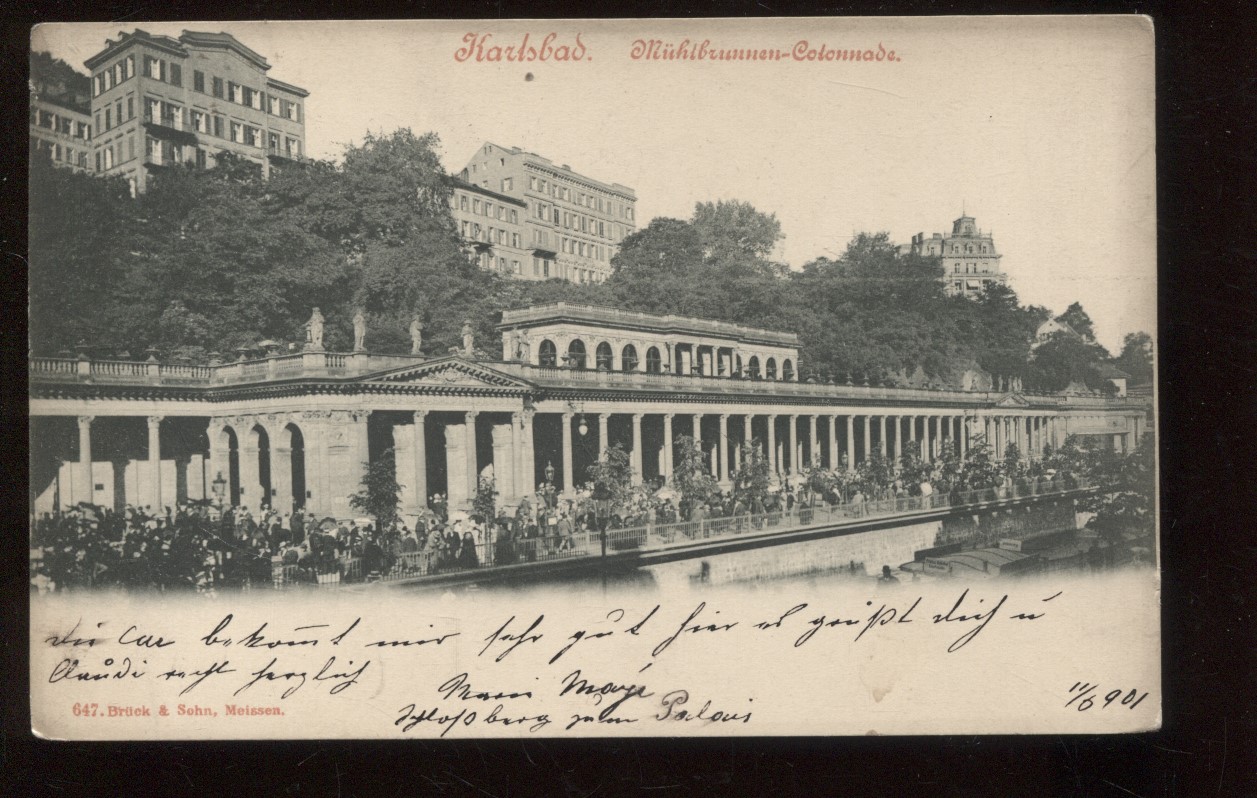 Karlsbad. Mühlbrunnen-Colonnade.
Die Cur bekomt mir sehr gut hier es grüßt dich u
Claudi recht herzlich
Marie
Schloßberg zum Palais
11/6 901
647. Brück & Sohn, Meissen.